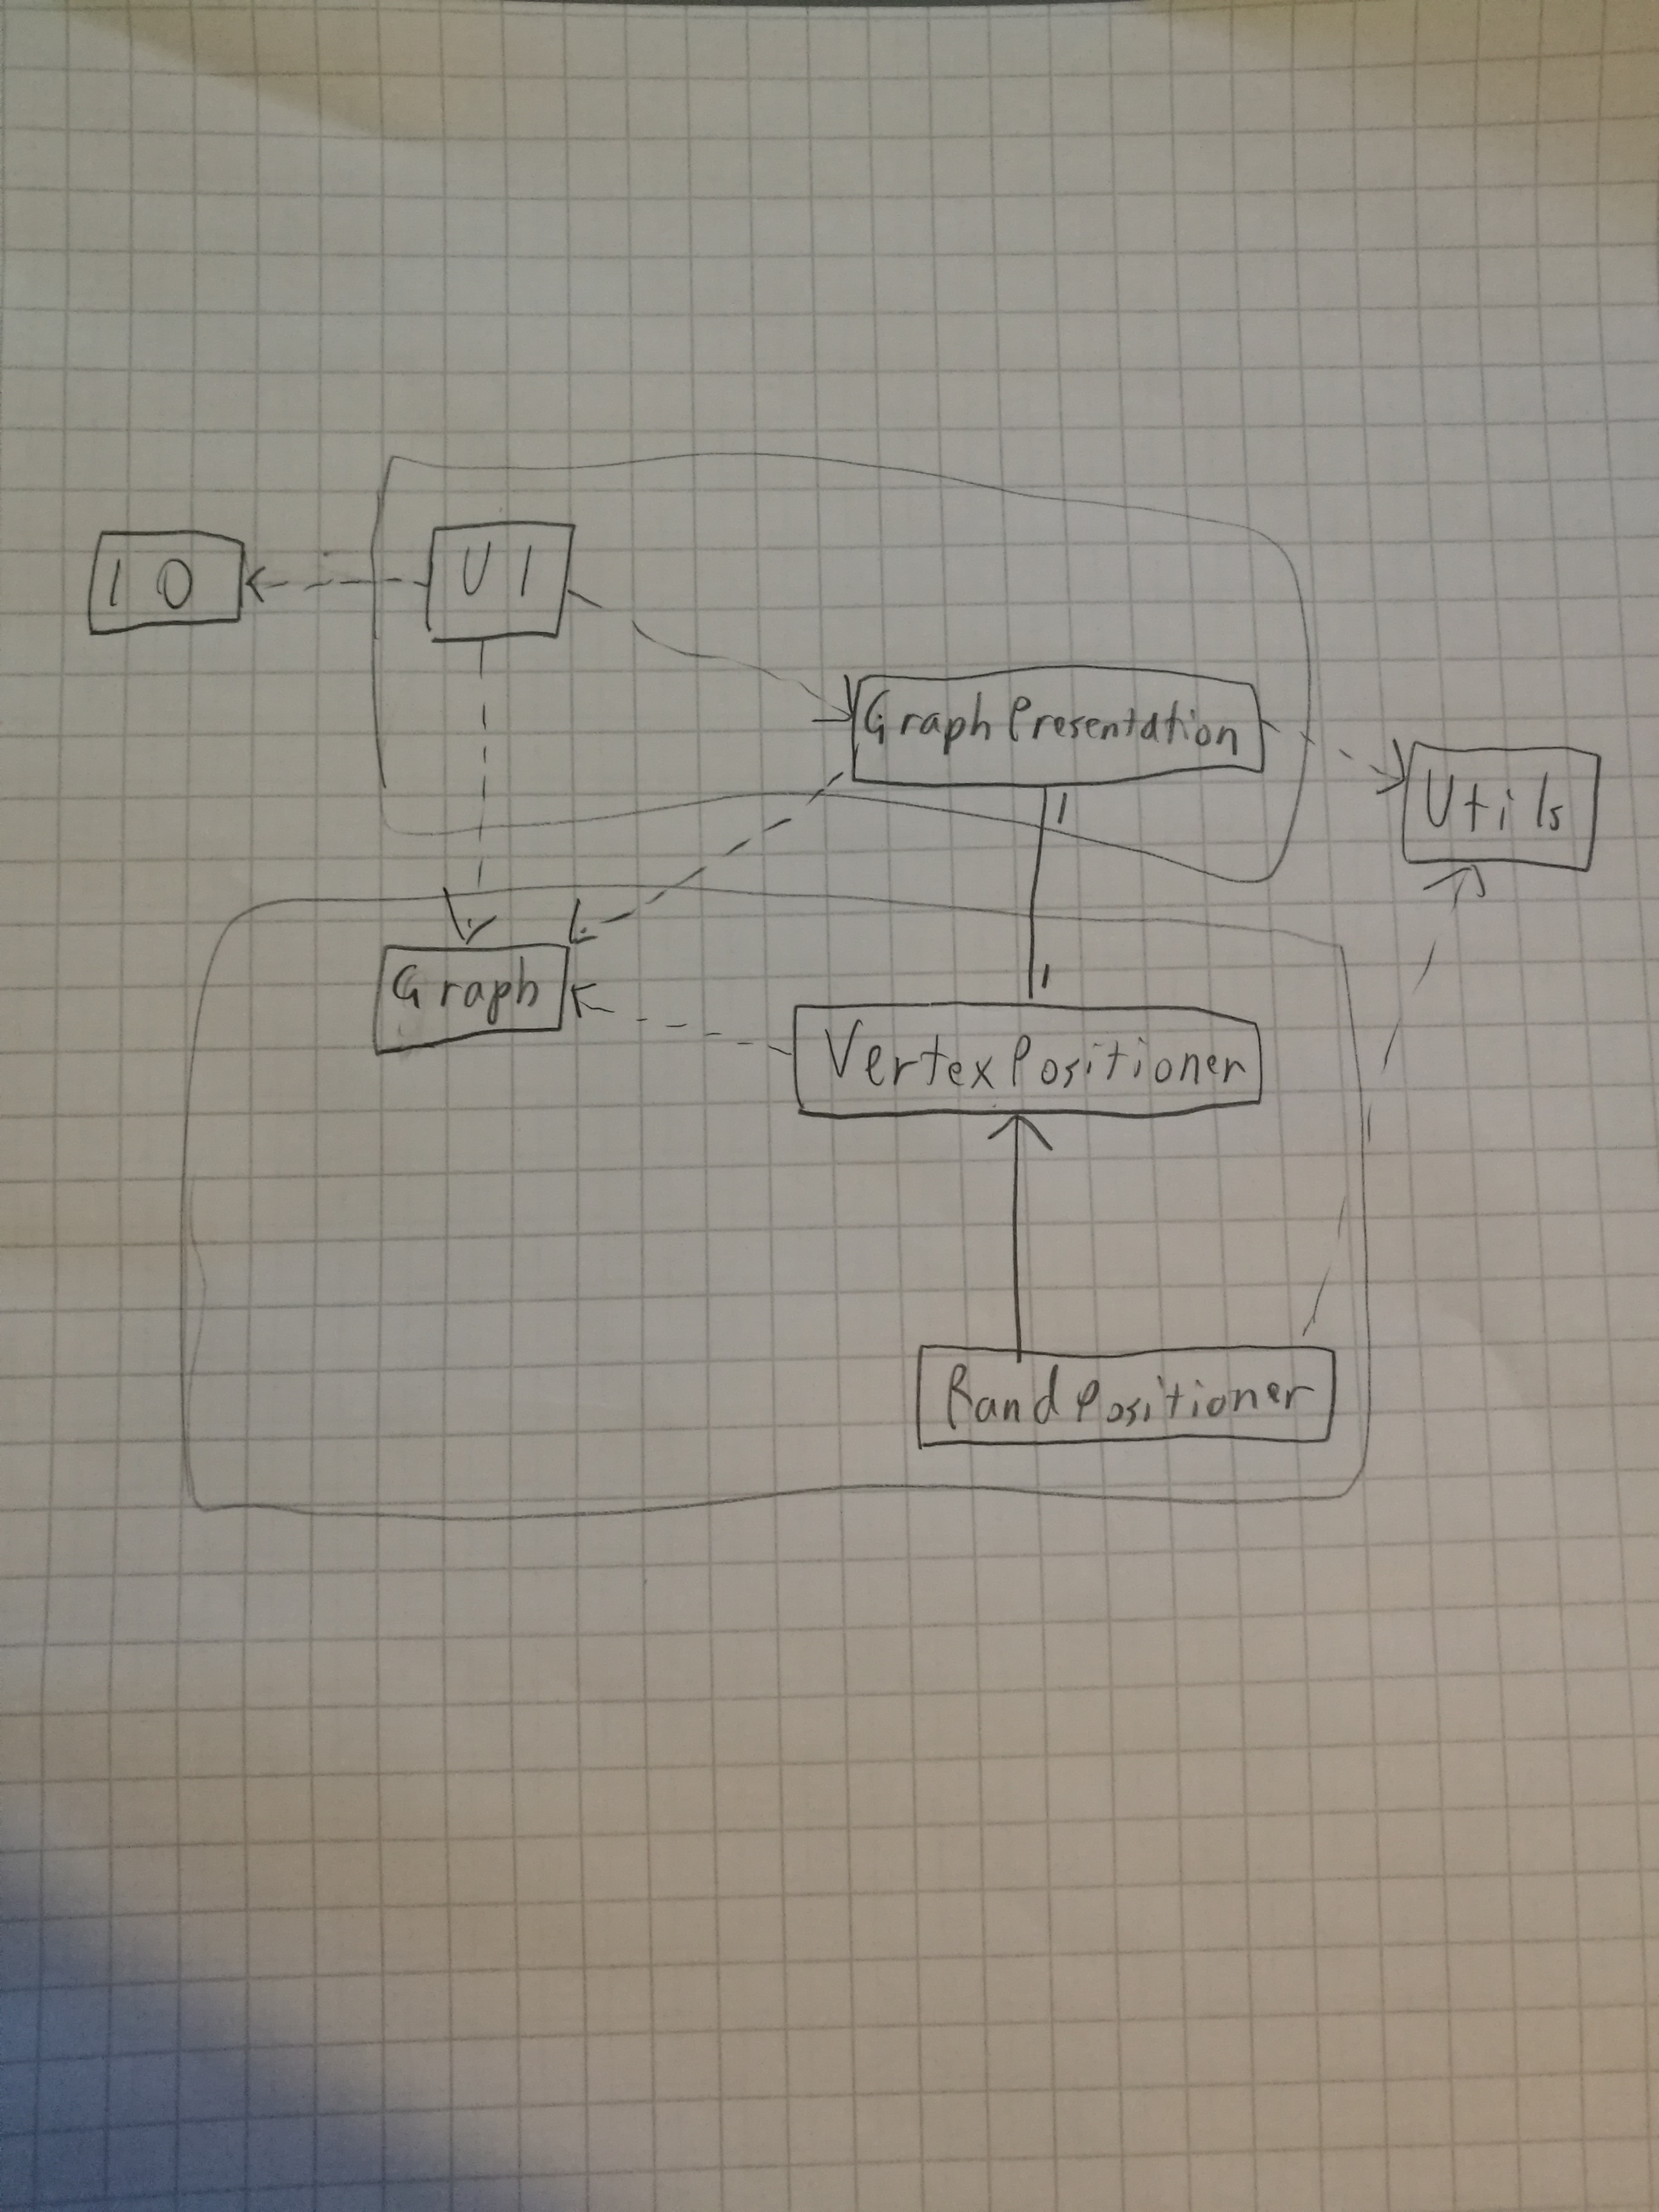 IO
UI
GraphPresentation
Utils
1
1
Graph
VertexPositioner
RandPositioner